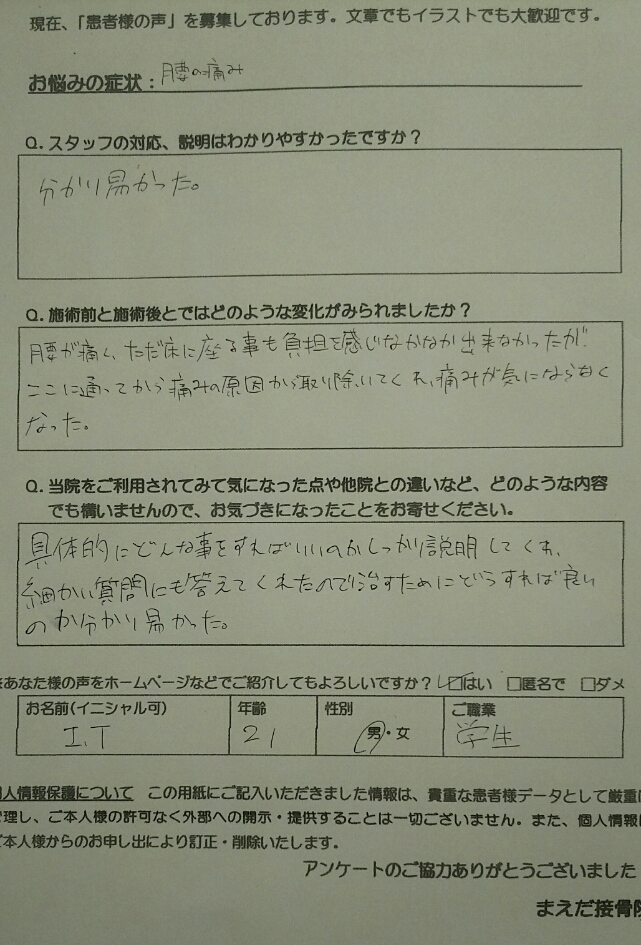 現在、「患者様の声」を募集しております。文章でもイラストでも大歓迎です。
お悩みの症状：腰の痛み
Q. スタッフの対応、説明はわかりやすかったですか？
分かり易かった。
Q. 施術前と施術後とではどのような変化がみられましたか？
腰が痛く、ただ床に座る事も負担を感じなかなか出来なかったが
ここに通ってから痛みの原因から取り除いてくれ、痛みが気にならなく
なった。
Q. 当院をご利用されてみて気になった点や他院との違いなど、どのような内容
でも構いませんので、お気づきになったことをお寄せください。
具体的にどんな事をすればいいのかしっかり説明してくれ、
細かい質問にも答えてくれたので治すためにどうすれば良い
のか分かり易かった。
あなた様の声をホームページなどでご紹介してもよろしいですか？ ☑はい □匿名で □ダメ
お名前(イニシャル可) 年齢 性別 ご職業
I.T 21 男・女 学生
人情報保護について この用紙にご記入いただきました情報は、貴重な患者様データとして厳重に
管理し、ご本人様の許可なく外部への開示・提供することは一切ございません。また、個人情報は
ご本人様からのお申し出により訂正・削除いたします。
アンケートのご協力ありがとうございました
まえだ接骨院